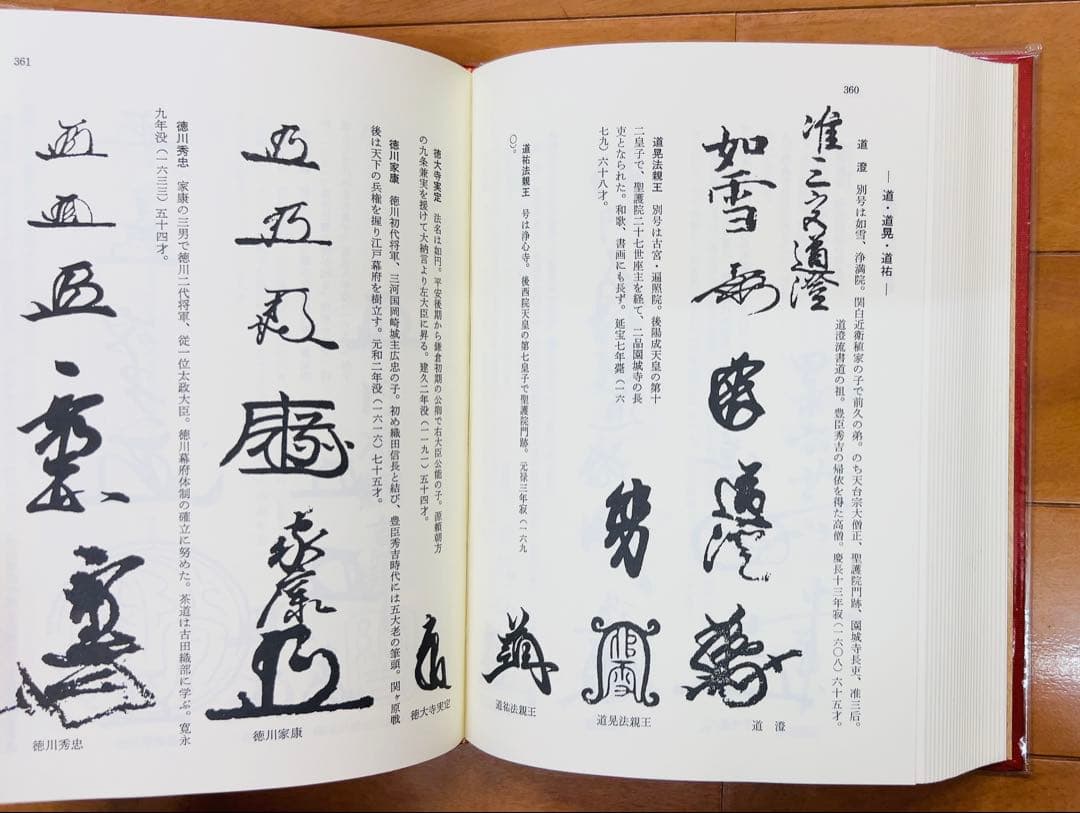 360
―道・道晃・道祐―
道　澄　別号は如雪、浄満院。関白近衛稙家の子で前久の弟。のち天台宗大僧正、聖護院門跡、園城寺長吏、准三后。
道澄流書道の祖。豊臣秀吉の帰依を得た高僧。慶長十三年寂（一六〇八）六十五才。
准三宮道澄
如雪
道澄
道　澄
道晃法親王　別号は古宮・遍照院。後陽成天皇の第十
二皇子で、聖護院二十七世座主を経て、二品園城寺の長
吏となられた。和歌、書画にも長ず。延宝七年薨（一六
七九）六十八才。
道晃法親王
道祐法親王　号は浄心寺。後西院天皇の第七皇子で聖護院門跡。元禄三年寂（一六九
〇）。
道祐法親王
361
徳大寺実定　法名は如円。平安後期から鎌倉初期の公卿で右大臣公能の子。源頼朝方
の九条兼実を援けて大納言より左大臣に昇る。建久二年没（一一九一）五十四才。
徳大寺実定
徳川家康　徳川初代将軍、三河国岡崎城主広忠の子。初め織田信長と結び、豊臣秀吉時代には五大老の筆頭。関ヶ原戦
後は天下の兵権を握り江戸幕府を樹立す。元和二年没（一六一六）七十五才。
家康
徳川家康
徳川秀忠　家康の三男で徳川二代将軍、従一位太政大臣。徳川幕府体制の確立に努めた。茶道は古田織部に学ぶ。寛永
九年没（一六三三）五十四才。
徳川秀忠